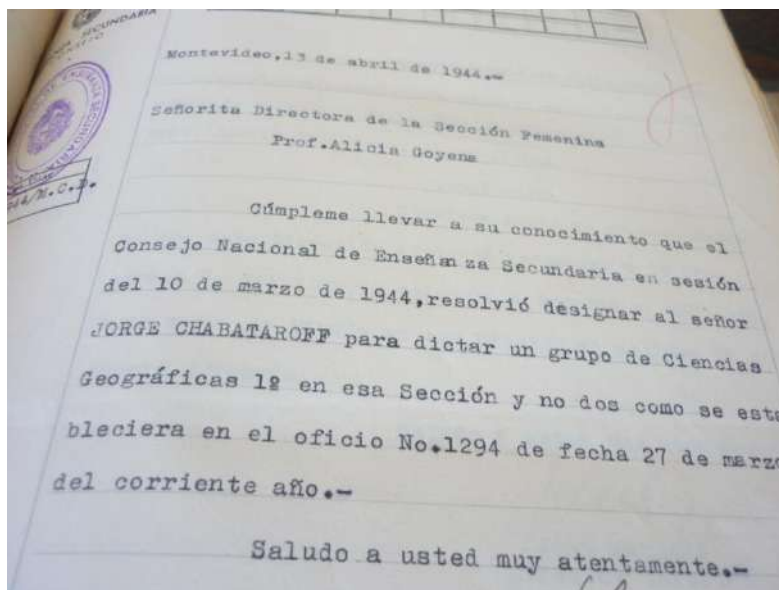 SECUNDARIA
Montevideo,13 de abril de 1944.-
Señorita Directora de la Sección Femenina
Prof.Alicia Goyena
Cúmpleme llevar a su conocimiento que el
Consejo Nacional de Enseñan za Secundaria en sesión
del 10 de marzo de 1944,resolvió designar al señor
JORGE CHABATAROFF para dictar un grupo de Ciencias
Geográficas 1º en esa Sección y no dos como se esta
bleciera en el oficio No.1294 de fecha 27 de marzo
del corriente año.-
Saludo a usted muy atentamente.-